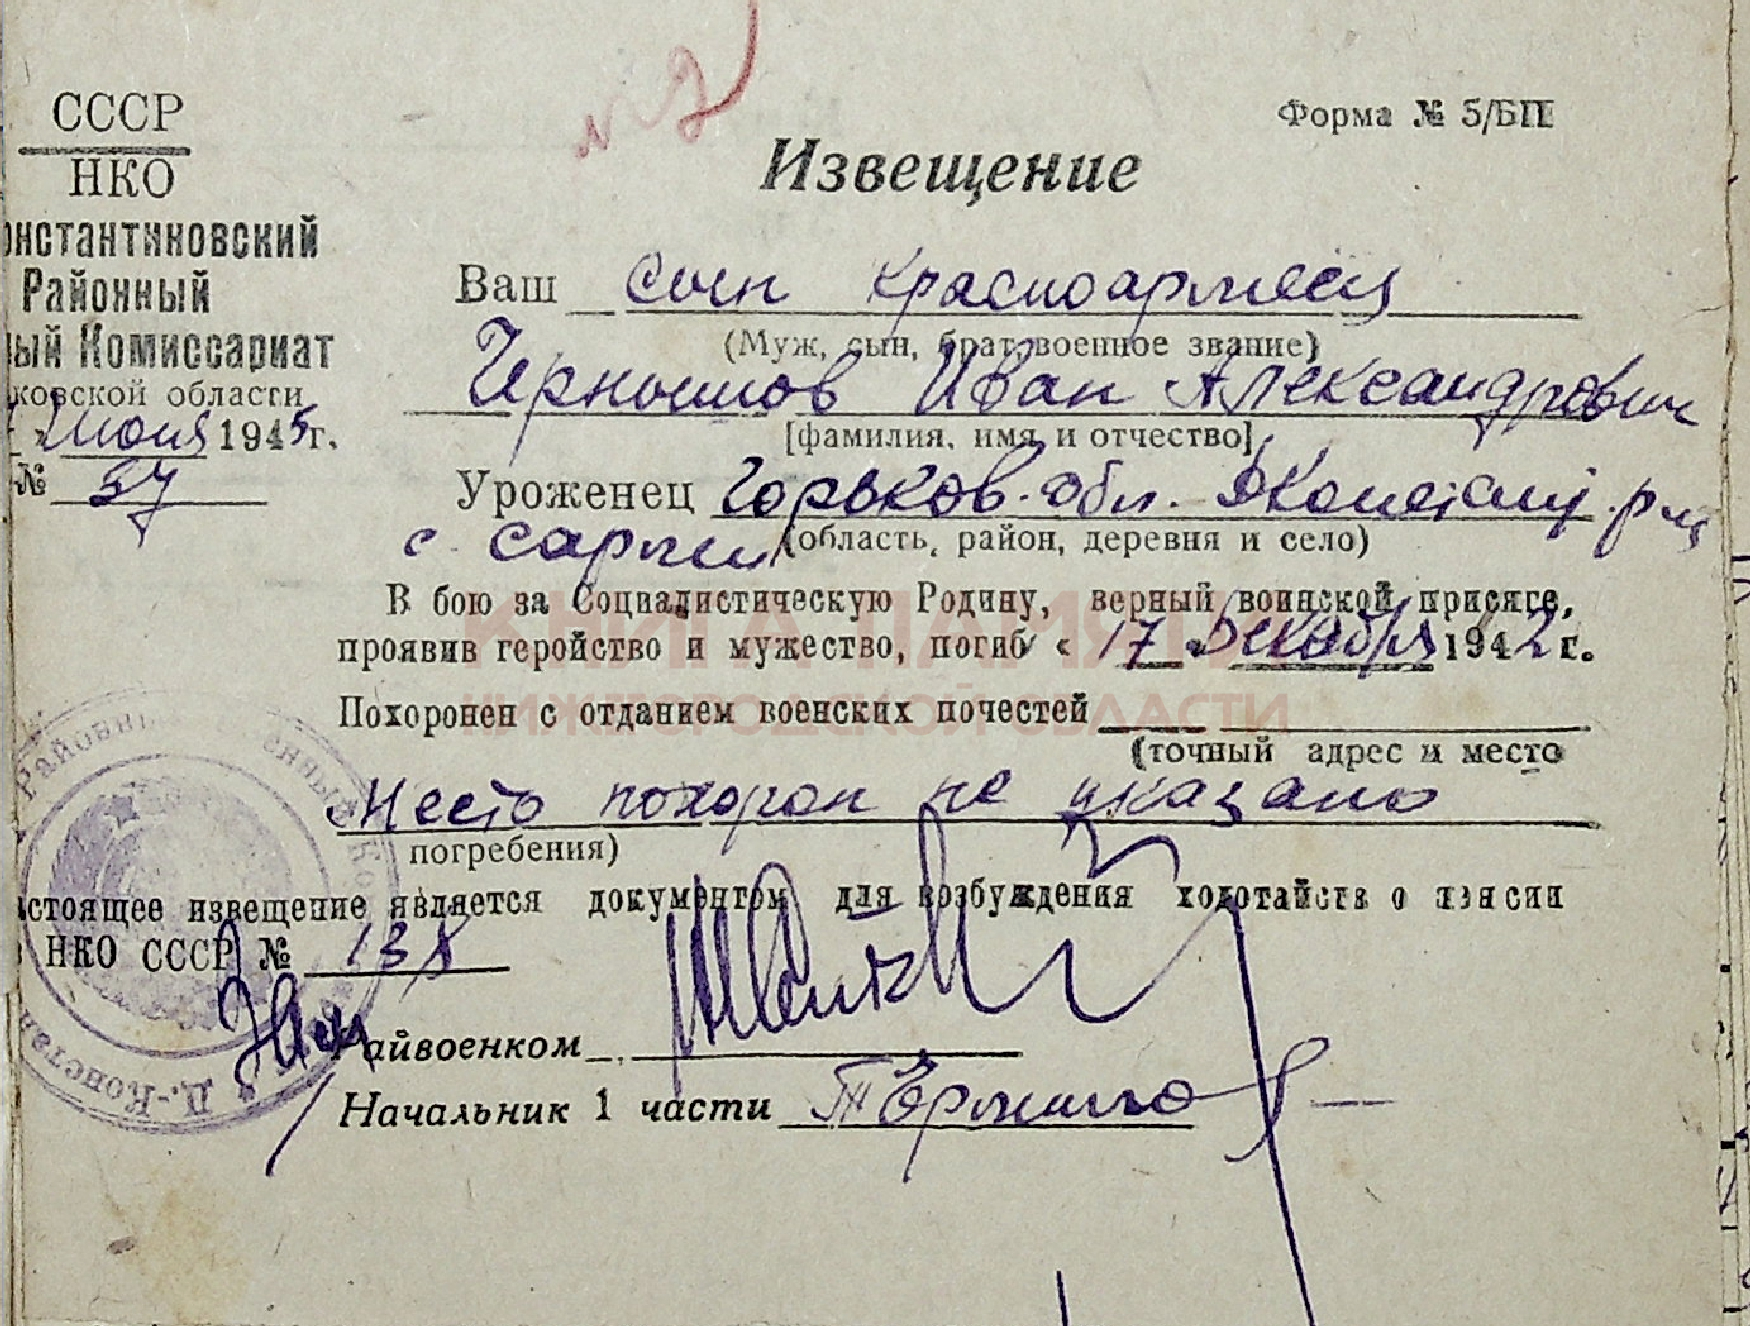 № 2
СССР
НКО
онстантиновский
Районный
ный Комиссариат
ковской области
июня 1945 г.
№ 57
Форма № 5/БП
Извещение
Ваш сын красноармеец
(Муж, сын, брат, военное звание)
Чернышов Иван Александрович
[фамилия, имя и отчество]
Уроженец Горьков. обл. Дконстант. р-н
(область, район, деревня и село)
с. Сарлеи
В бою за Социалистическую Родину, верный воинской присяге,
проявив геройство и мужество, погиб «17» Декабря 1942 г.
КНИГА ПАМЯТИ
НИЖЕГОРОДСКОЙ ОБЛАСТИ
Похоронен с отданием военских почестей
(точный адрес и место
Место похорон не указано
погребения)
стоящее извещение является документом для возбуждения ходотайств о
НКО СССР № 138
Райвоенком
Начальник 1 части
Районный
Д.-Констан